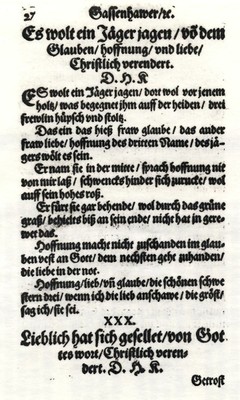 27 Gassenhawer/ꝛc.
Es wolt ein Jäger jagen / vō dem
Glauben / hoffnung / vnd liebe /
Christlich verendert.
D. H. K
ES wolt ein Jäger jagen / dort wol vor jenem
holtz / was begegnet jhm auff der heiden / drei
frewlin hüpsch vnd stoltz.
Das ein das hieß fraw glaube / das ander
fraw liebe / hoffnung des dritten Name / des jä-
gers wölt es sein.
Er nam sie in der mitte / sprach hoffnung nit
von mir laß / schwencks hinder sich zurucke / wol
auff sein hohes roß.
Er fürt sie gar behende / wol durch das grüne
graß / behielts biß an sein ende / nicht hat jn gere-
wet das.
Hoffnung macht nicht zuschanden im glau-
ben vest an Gott / dem nechsten geht zuhanden /
die liebe in der not.
Hoffnung / lieb / vñ glaube / die schönen schwe
stern drei / wenn ich die lieb anschawe / die gröst /
sag ich / sie sei.
XXX.
Lieblich hat sich gesellet / von Got
tes wort / Christlich veren-
dert. D. H. K.
Getrost